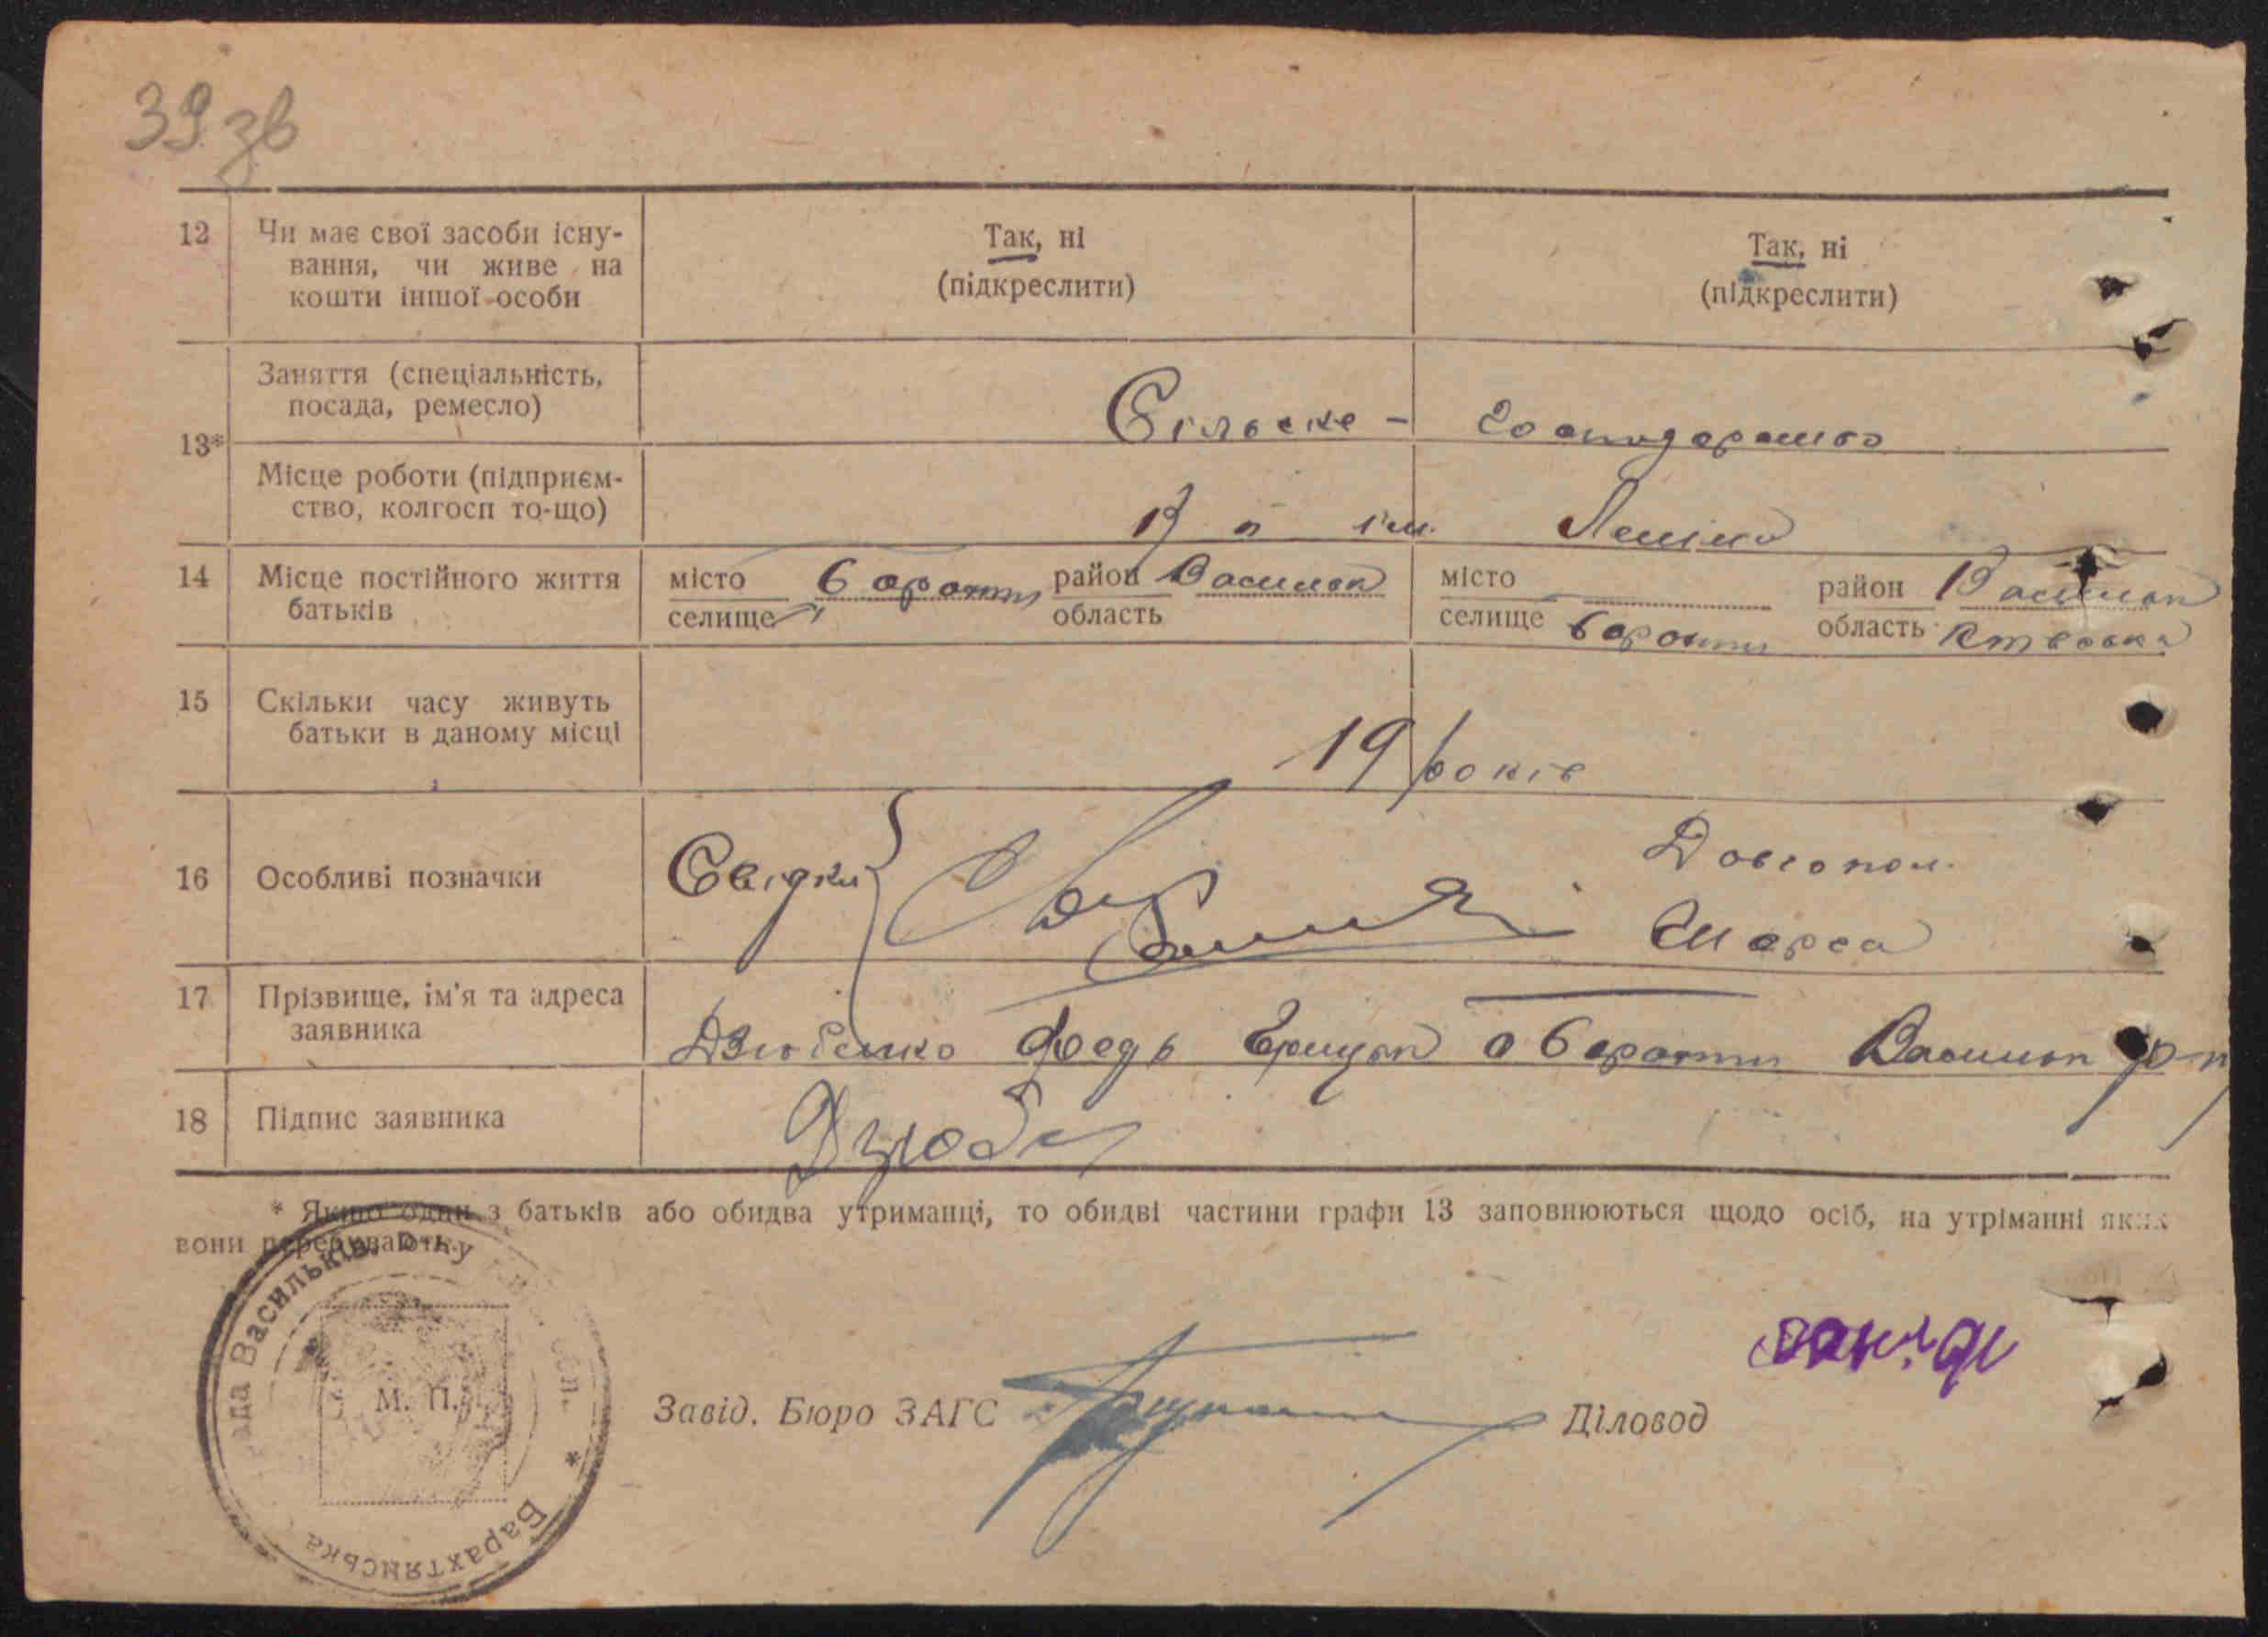 39 зв
12 Чи має свої засоби існу-
вання, чи живе на
кошти іншої особи
Так, ні
(підкреслити)
Так, ні
(підкреслити)
13*
Заняття (спеціальність,
посада, ремесло)
Сільське - господарство
Місце роботи (підприєм-
ство, колгосп то-що)
ім. Леніна
14 Місце постійного життя
батьків
місто
селище
район Васильк
область
місто
селище
район Васильк
область
15 Скільки часу живуть
батьки в даному місці
19 років
16 Особливі позначки
Свідки
Довгопол.
Шарса
17 Прізвище, ім'я та адреса
заявника
Дзюбенко Федь Васильк р-н
18 Підпис заявника
Дзюбе
* Якщо один з батьків або обидва утриманці, то обидві частини графи 13 заповнюються щодо осіб, на утріманні яких
вони перебувають.
М. П.
Барахтянська
рада Васильків. р-ну
обл.
Завід. Бюро ЗАГС
Діловод